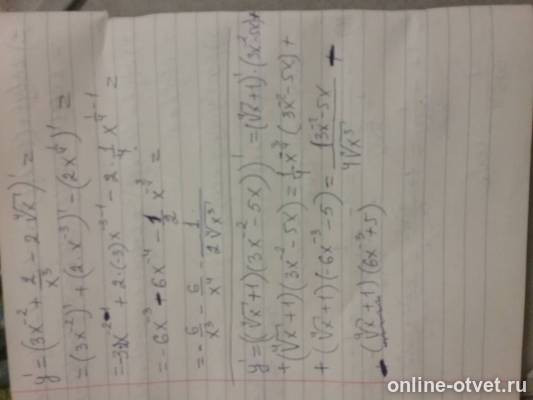 y' = (3x^-2 + 2/x^3 - 2·⁴√x)' =
= (3x^-2)' + (2·x^-3)' - (2x^1/4)' =
= -3·2x^-2-1 + 2·(-3)x^-3-1 - 2·1/4 x^1/4-1 =
= -6x^-3 - 6x^-4 - 1/2 x^-3/4 =
= -6/x^3 - 6/x^4 - 1/2⁴√x^3
y' = ((⁴√x+1)(3x^-2-5x))' = (⁴√x+1)'·(3x^-2-5x)+
+(⁴√x+1)(3x^-2-5x)' = 1/4 x^-3/4 (3x^-2-5x)+
+(⁴√x+1)(-6x^-3-5) = (3x^-2-5x)/4⁴√x^3 -
- (⁴√x+1)(6x^-3+5)
online-otvet.ru